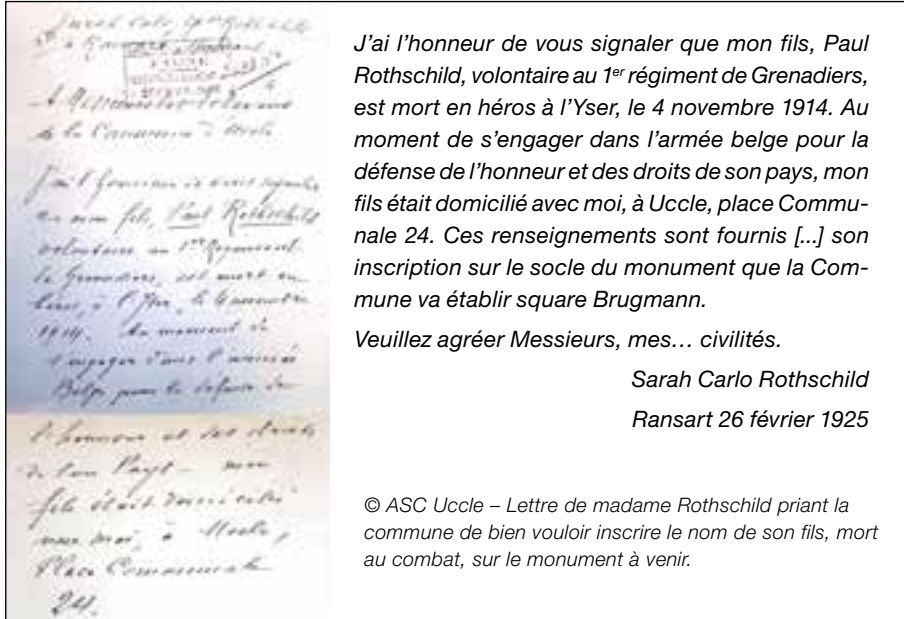 de la Commune
J'ai l'honneur de vous signaler
que mon fils, Paul Rothschild
volontaire au 1er Régiment
de Grenadiers, est mort en
héros, à l'Yser, le 4 novembre
1914. Au moment de
s'engager dans l'armée
Belge pour la défense de
l'honneur et des droits
de son Pays – mon
fils était domicilié
avec moi, à Uccle,
Place Communale
24.
J'ai l'honneur de vous signaler que mon fils, Paul
Rothschild, volontaire au 1er régiment de Grenadiers,
est mort en héros à l'Yser, le 4 novembre 1914. Au
moment de s'engager dans l'armée belge pour la
défense de l'honneur et des droits de son pays, mon
fils était domicilié avec moi, à Uccle, place Commu-
nale 24. Ces renseignements sont fournis [...] son
inscription sur le socle du monument que la Com-
mune va établir square Brugmann.
Veuillez agréer Messieurs, mes… civilités.
Sarah Carlo Rothschild
Ransart 26 février 1925
© ASC Uccle – Lettre de madame Rothschild priant la
commune de bien vouloir inscrire le nom de son fils, mort
au combat, sur le monument à venir.